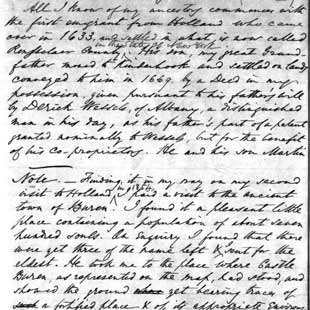 All I know of my ancestry commences with
the first emigrant from Holland who came
over in 1633, and settled in what is now called
Rensselaer County in the State of New York. His son my great Grand-
father moved to Kinderhook and settled on lands
conveyed to him in 1669, by a Deed in my
possession, given pursuant to his father's will
by Derick Wessels, of Albany, a distinguished
man in his day, as his father's part of a patent
granted nominally to Wessels, but for the benefit
of his Co-proprietors. He and his son Martin
Note — Finding it in my way on my second
visit to Holland, in 1854, I paid a visit to the ancient
town of Buren. I found it a pleasant little
place containing a population of about seven
hundred souls. On Enquiry I found that there
were yet three of the name left & sent for the
eldest. He took me to the place where Castle
Buren, as represented on the map, had stood, and
showed the ground yet bearing traces of
such a fortified place & of its appropriate environs